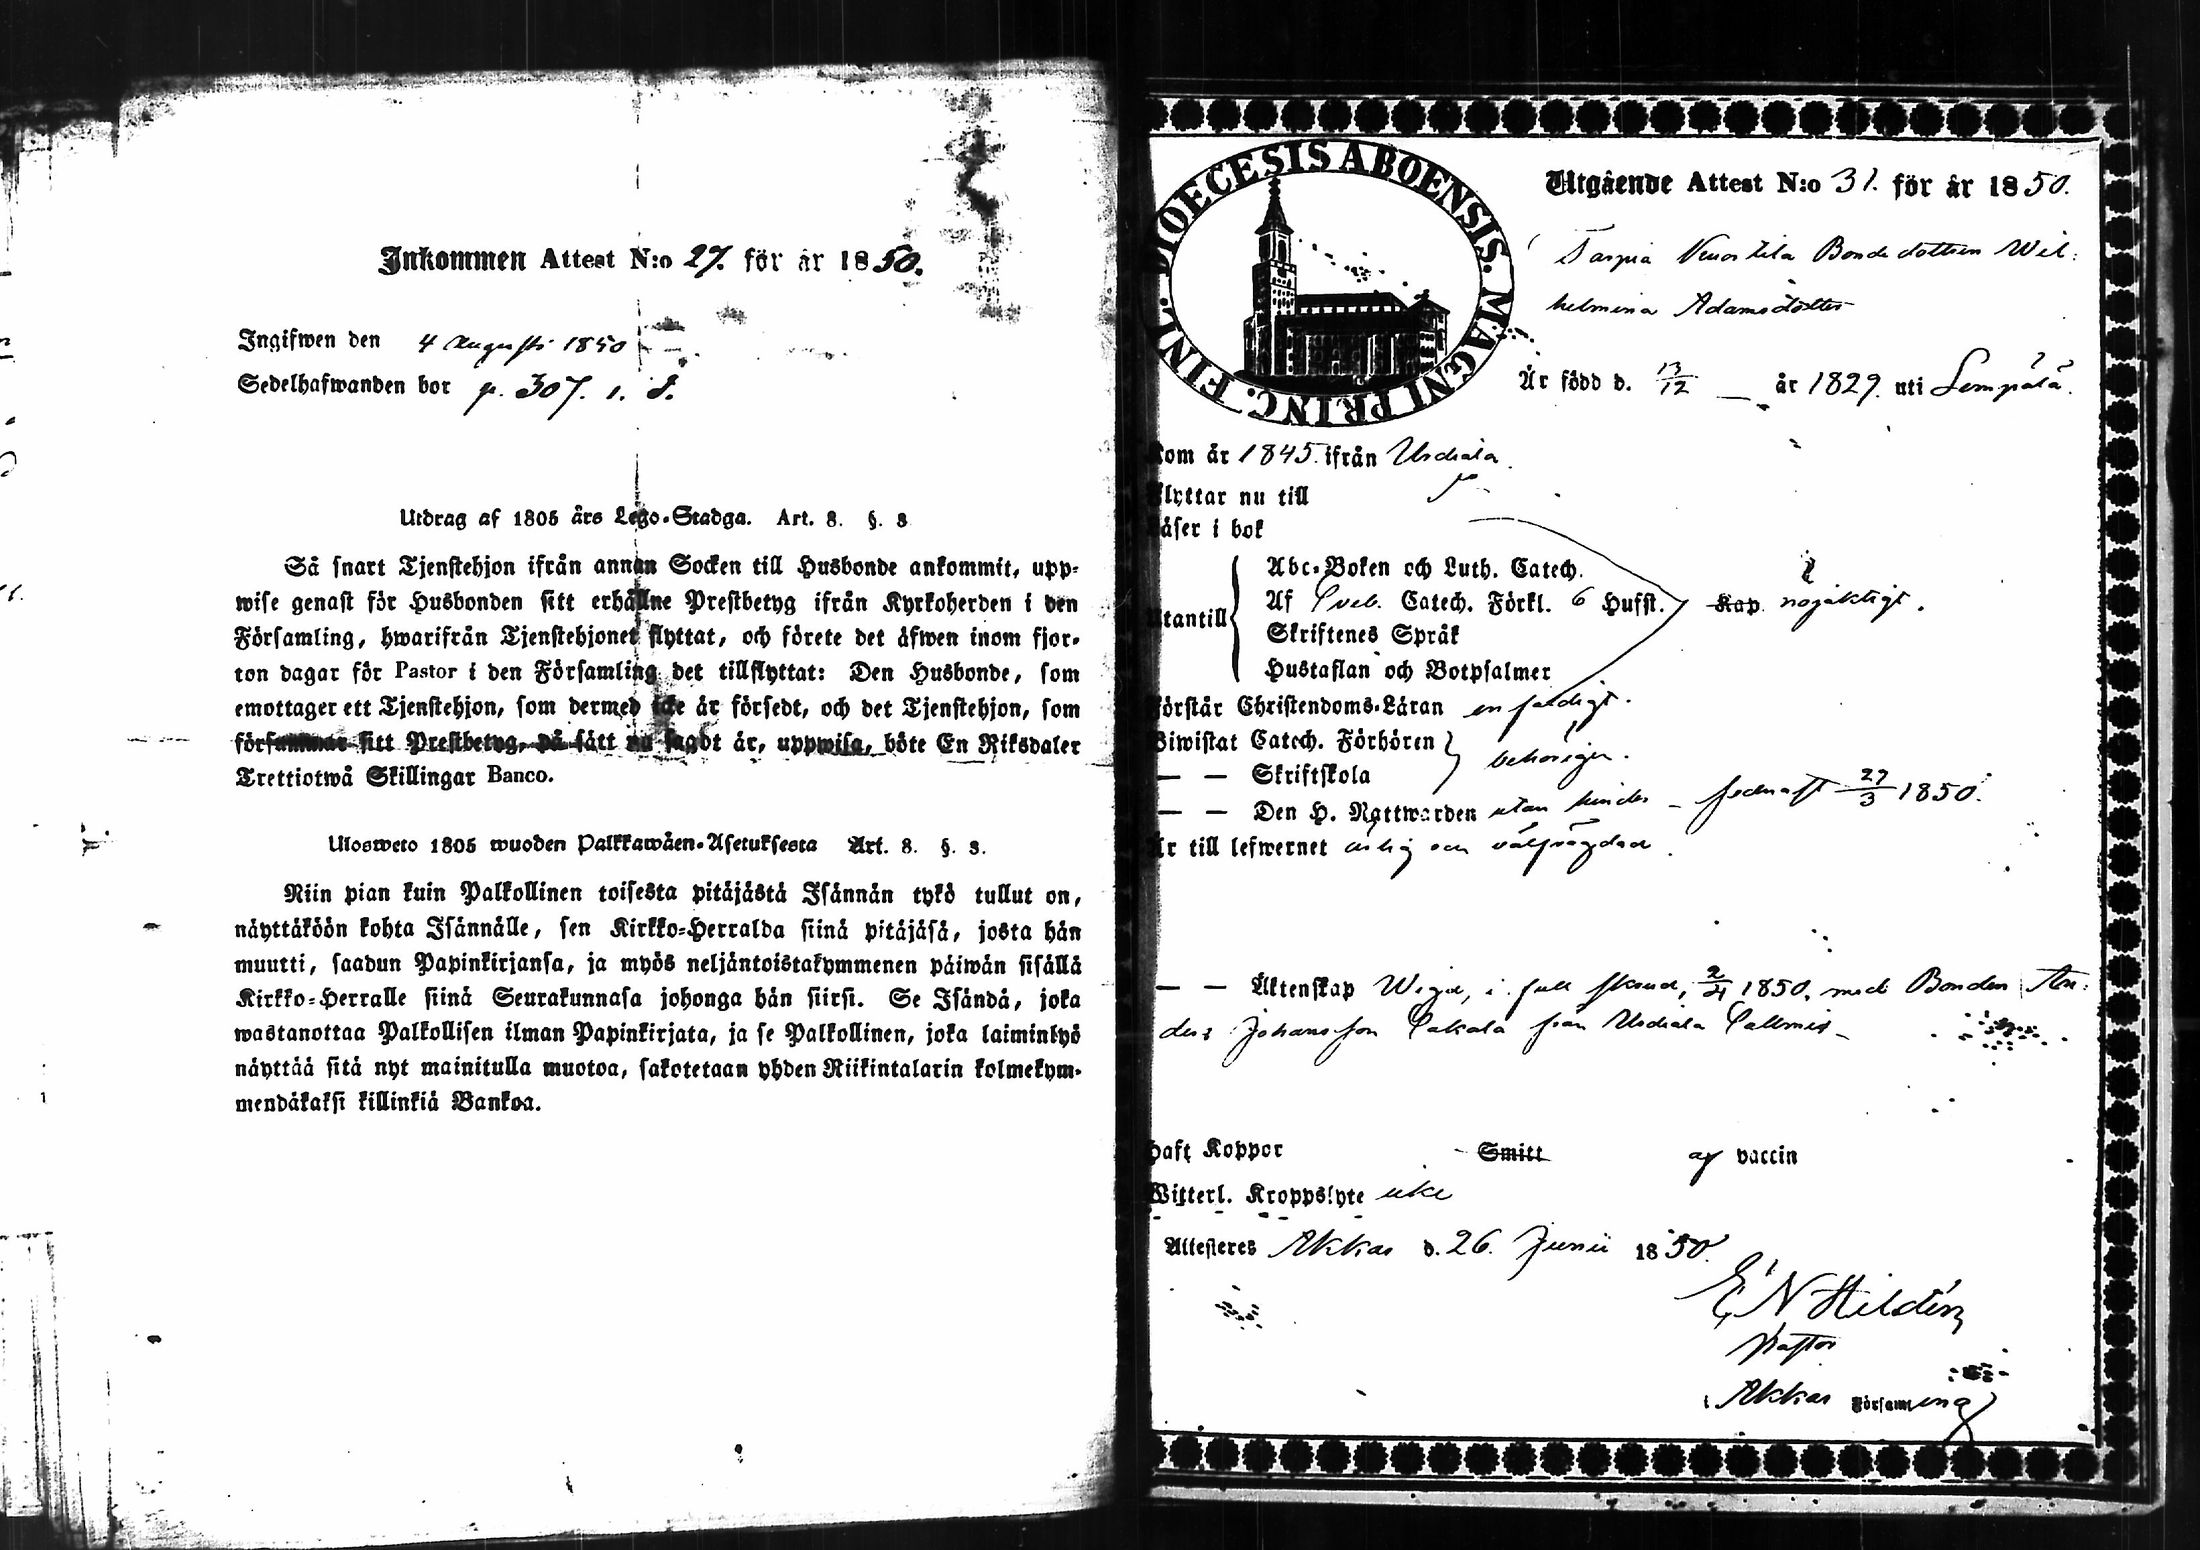 Inkommen Attest N:o 27. för år 1850.
Ingifwen den 4 Augusti 1850
Sedelhafwanden bor p. 307. 1. S.
Utdrag af 1805 års Lego-Stadga. Art. 8. §. 8
Så snart Tjenstehjon ifrån annan Socken till Husbonde ankommit, upp-
wise genast för Husbonden sitt erhållne Prestbetyg ifrån Kyrkoherden i den
Församling, hwarifrån Tjenstehjonet flyttat, och förete det äfwen inom fjor-
ton dagar för Pastor i den Församling det tillflyttat: Den Husbonde, som
emottager ett Tjenstehjon, som dermed icke är försedt, och det Tjenstehjon, som
försummar sitt Prestbetyg, på sätt nu sagdt är, uppwisa, böte En Riksdaler
Trettiotwå Skillingar Banco.
Ulosweto 1805 wuoden Palkkawäen-Asetuksesta Art. 8. §. 8.
Niin pian kuin Palkollinen toisesta pitäjästä Isännän tykö tullut on,
näyttäköön kohta Isännälle, sen Kirkko-Herralda siinä pitäjäsä, josta hän
muutti, saadun Papinkirjansa, ja myös neljäntoistakymmenen päiwän sisällä
Kirkko-Herralle siinä Seurakunnasa johonga hän siirsi. Se Isändä, joka
wastanottaa Palkollisen ilman Papinkirjata, ja se Palkollinen, joka laiminlyö
näyttää sitä nyt mainitulla muotoa, sakotetaan yhden Riikintalarin kolmekym-
mendäkaksi killinkiä Bankoa.
DIOECESIS ABOENSIS. MAGNI PRINC. FINL.
Utgående Attest N:o 31. för år 1850.
Tarpia Bondedottren Wil-
helmina Adamsdotter
Är född d. 13/12 år 1829. uti Lempälä.
Kom år 1845. ifrån Urdiala
Flyttar nu till
Läser i bok
Abc-Boken och Luth. Catech.
Utantill Af Sveb. Catech. Förkl. 6 Hufst. Kap nöjaktigt.
Skriftenes Språk
Hustaflan och Botpsalmer
Förstår Christendoms-Läran enfaldigt.
Biwistat Catech. Förhören
behörigen.
— — Skriftskola
— — Den H. Nattwarden utan hinder – sednast 29/3 1850.
Är till lefwernet ärlig och välfrägdad
— — Äktenskap Wigd, i full stånd, 1850, med Bonden An-
ders Johansson från Urdiala
Haft Koppor Smitt af vaccin
Witterl. Kroppslyte icke
Attesteres Akkas d. 26. Junii 1850.
E N Hildén
Pastor
i Akkas Församling